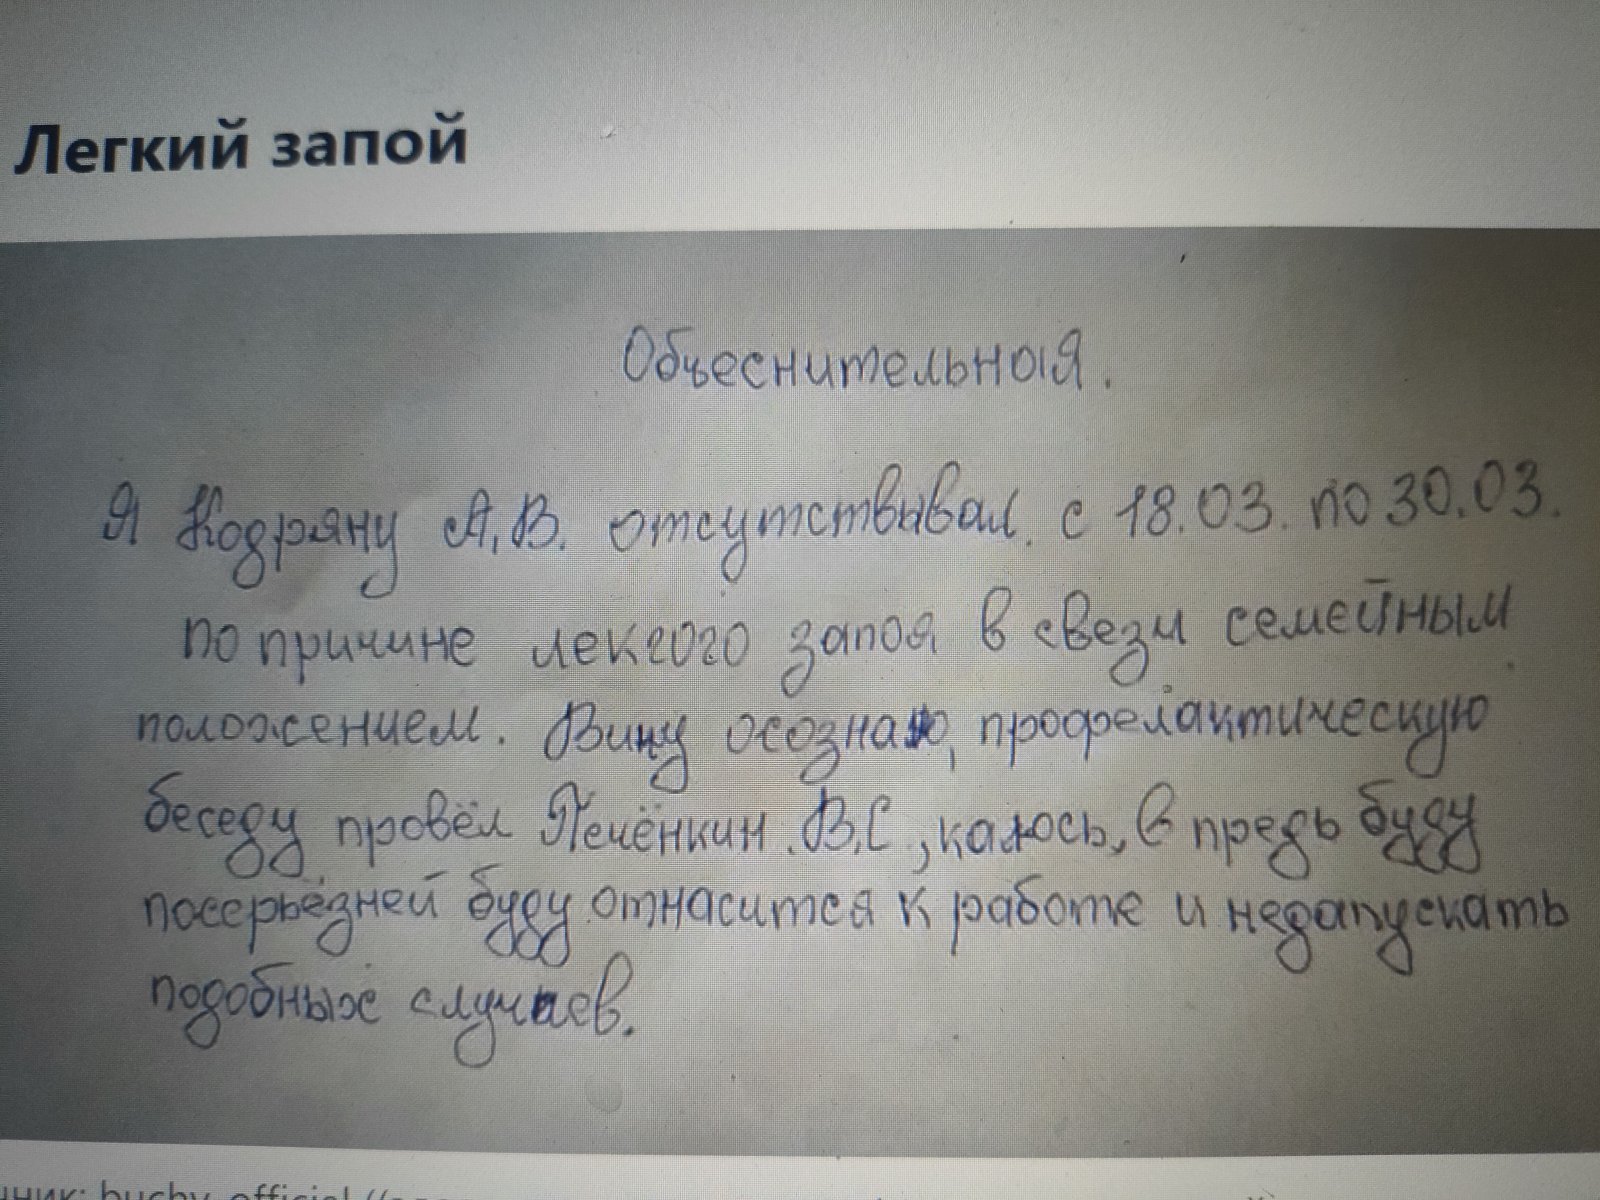 Легкий запой
Обьеснительныя.
Я Кодряну А.В. отсутствывал с 18.03. по 30.03.
по причине лекгого запоя в свези семейным
положением. Вину осознаю, профелактическую
беседу провёл Печёнкин В.С, каюсь, в предь буду
посерьёзней буду отнасится к работе и недапускать
подобных случаев.